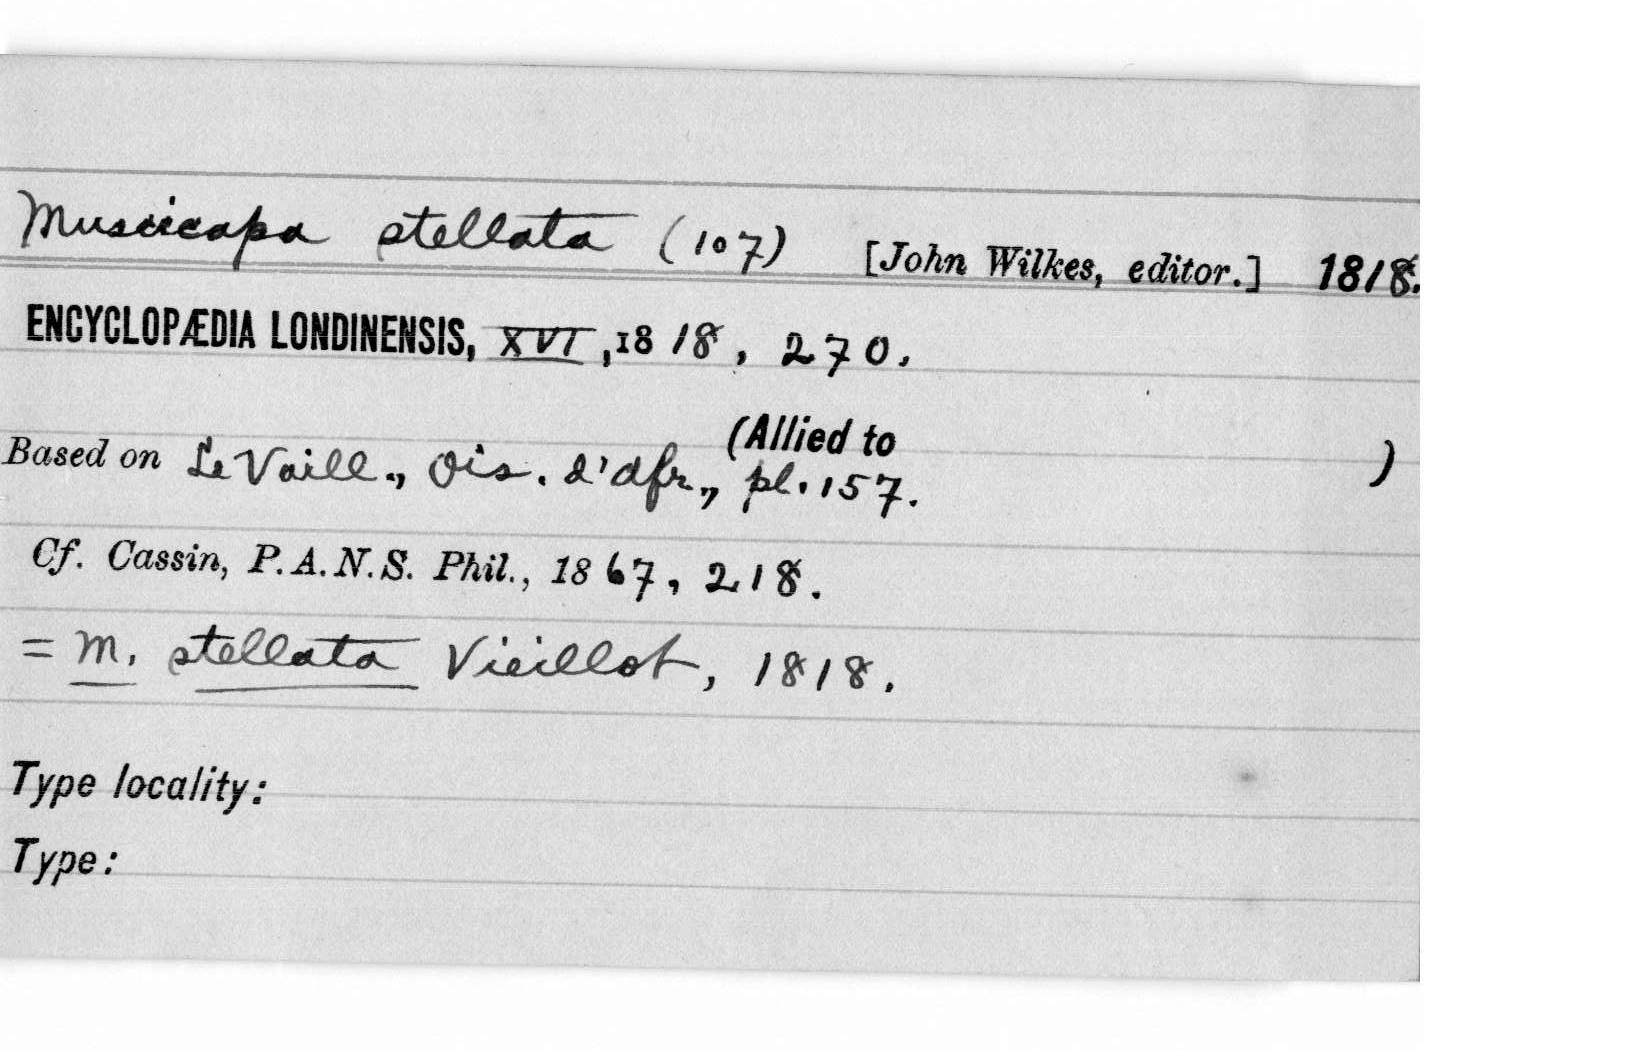 Muscicapa stellata (107) [John Wilkes, editor.] 1818.
ENCYCLOPÆDIA LONDINENSIS, XVI, 1818, 270.
(Allied to )
Based on Le Vaill., Ois. d'Afr., pl. 157.
Cf. Cassin, P.A.N.S. Phil., 1867, 218.
= M. stellata Vieillot, 1818.
Type locality:
Type: